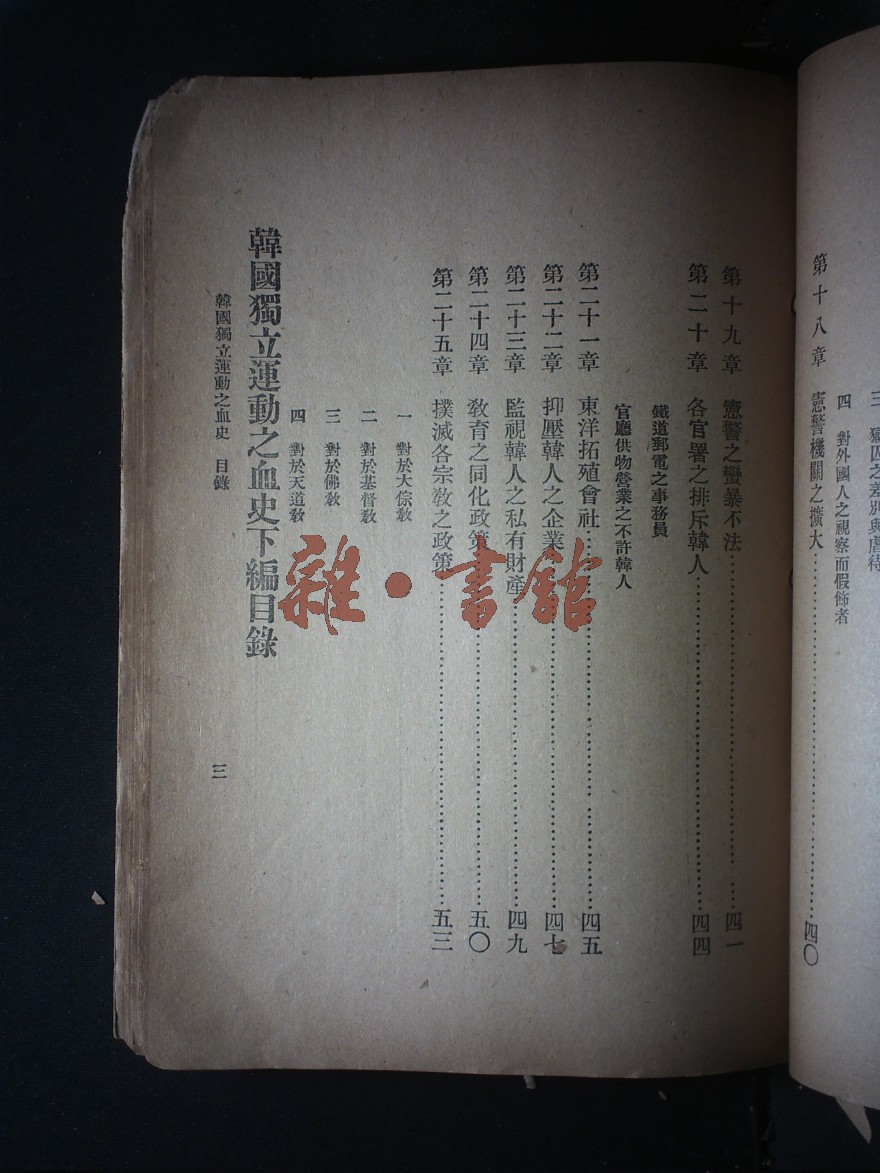 四　對外國人之視察而假飾者
第十八章　憲警機關之擴大…………四〇
第十九章　憲警之蠻暴不法…………四一
第二十章　各官署之排斥韓人…………四四
鐵道郵電之事務員
官廳供物營業之不許韓人
第二十一章　東洋拓殖會社…………四五
第二十二章　抑壓韓人之企業…………四七
第二十三章　監視韓人之私有財產…………四九
第二十四章　敎育之同化政策…………五〇
第二十五章　撲滅各宗敎之政策…………五三
一　對於大倧敎
二　對於基督敎
三　對於佛敎
四　對於天道敎
韓國獨立運動之血史下編目錄
韓國獨立運動之血史　目錄　三
雜·書館